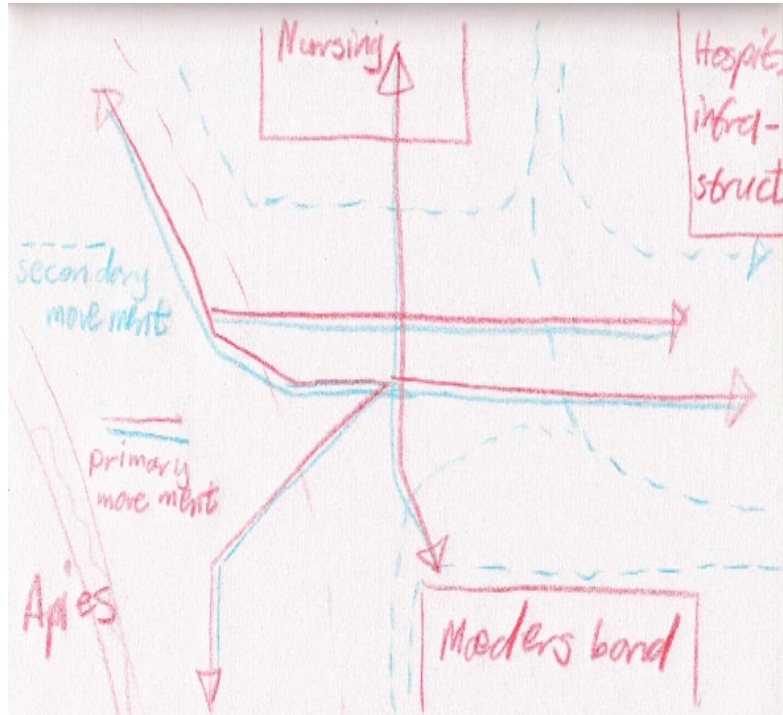 Nursing
Hospit
infra-
struct
secondary
movement
primary
movement
Apies
Moeders bond